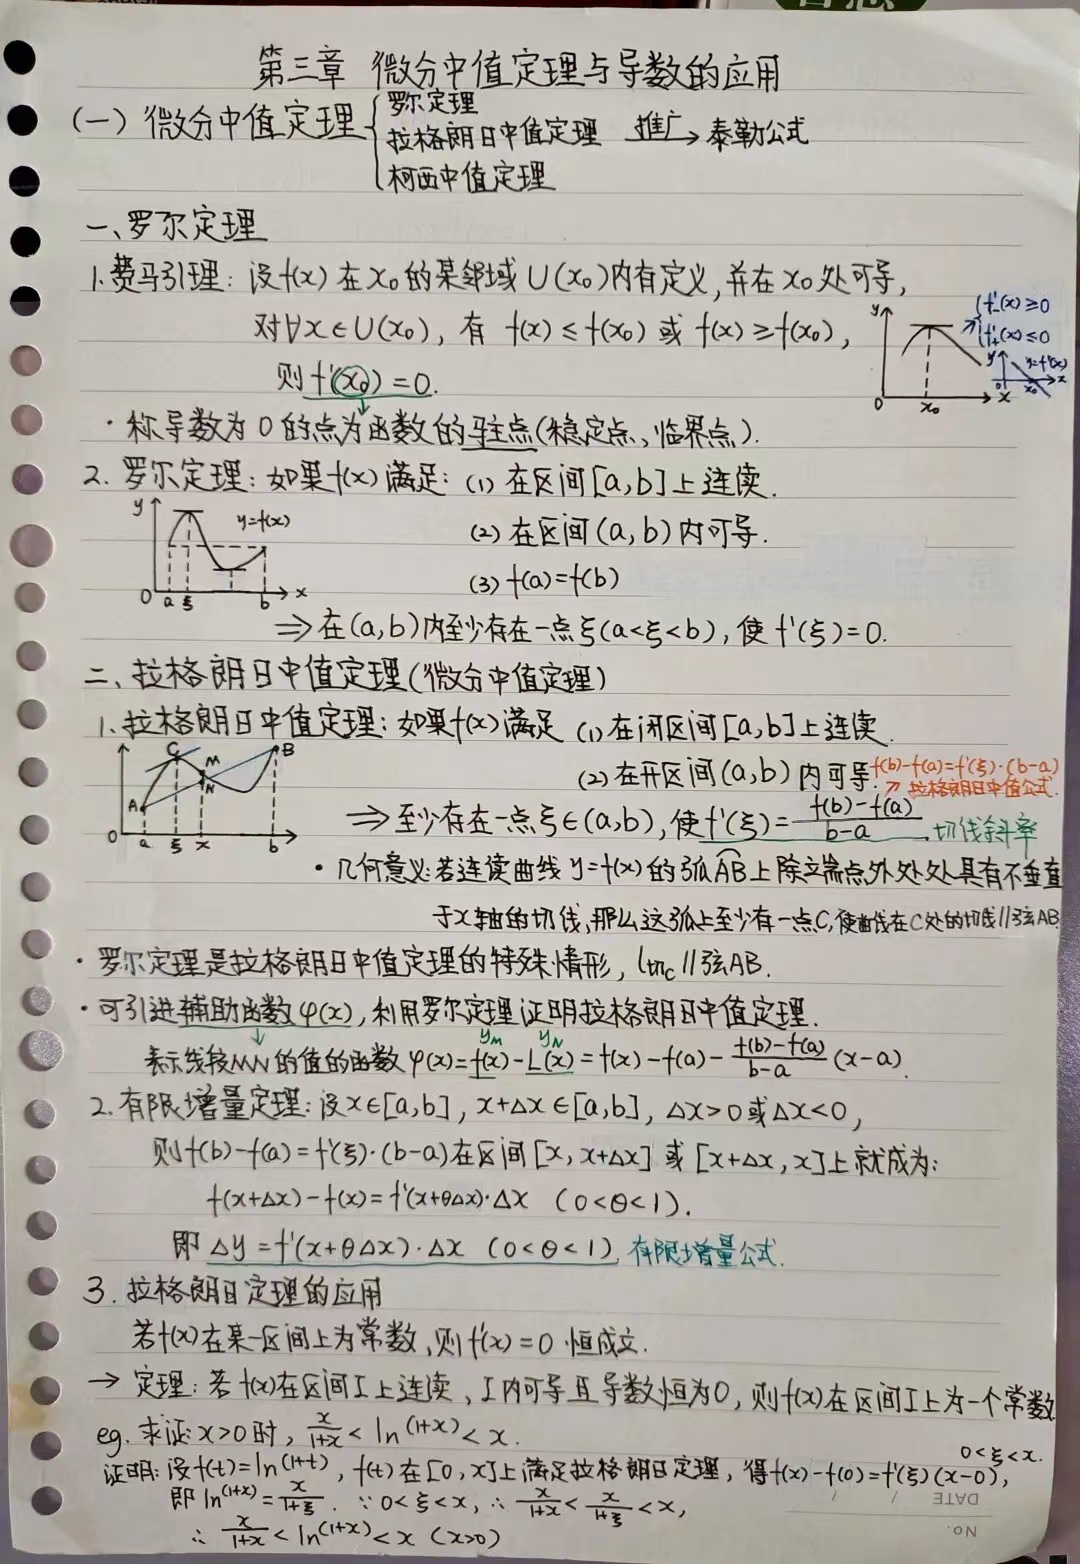 第三章 微分中值定理与导数的应用
(一) 微分中值定理 { 罗尔定理
拉格朗日中值定理 推广→ 泰勒公式
柯西中值定理
一、罗尔定理
1.费马引理: 设f(x) 在 x₀ 的某邻域 U(x₀)内有定义, 并在 x₀ 处可导,
对∀x∈U(x₀), 有 f(x)≤f(x₀) 或 f(x)≥f(x₀),
则 f'(x₀)=0.
y
0
x₀
x
↗ { f'₋(x)≥0
f'₊(x)≤0
y y=f'(x)
0 x₀ x
· 称导数为0的点为函数的驻点(稳定点、临界点).
2. 罗尔定理: 如果f(x)满足: (1) 在区间[a,b]上连续.
(2) 在区间(a,b)内可导.
(3) f(a)=f(b)
y y=f(x)
0 a ξ b x
⇒ 在(a,b)内至少存在一点ξ(a<ξ<b), 使 f'(ξ)=0.
二、拉格朗日中值定理(微分中值定理)
1. 拉格朗日中值定理: 如果f(x)满足 (1) 在闭区间[a,b]上连续.
(2) 在开区间(a,b)内可导. f(b)-f(a)=f'(ξ)·(b-a)
↗ 拉格朗日中值公式.
A C M N B
0 a ξ x b
⇒ 至少存在一点ξ∈(a,b), 使f'(ξ)= (f(b)-f(a))/(b-a) 切线斜率
· 几何意义:若连续曲线 y=f(x)的弧AB上除端点外处处具有不垂直
于x轴的切线,那么这弧上至少有一点C,使曲线在C处的切线//弦AB.
· 罗尔定理是拉格朗日中值定理的特殊情形, l切c//弦AB.
· 可引进辅助函数φ(x), 利用罗尔定理证明拉格朗日中值定理.
y_M y_N
表示线段MN的值的函数 φ(x)=f(x)-L(x)=f(x)-f(a)- (f(b)-f(a))/(b-a) (x-a).
2. 有限增量定理: 设x∈[a,b], x+Δx∈[a,b], Δx>0或Δx<0,
则f(b)-f(a)=f'(ξ)·(b-a)在区间[x, x+Δx] 或 [x+Δx, x]上就成为:
f(x+Δx)-f(x)=f'(x+θΔx)·Δx (0<θ<1).
即 Δy=f'(x+θΔx)·Δx (0<θ<1) 有限增量公式.
3. 拉格朗日定理的应用
若f(x)在某一区间上为常数, 则f'(x)=0 恒成立.
→ 定理: 若 f(x)在区间I上连续, I内可导且导数恒为0, 则f(x)在区间I上为一个常数
eg. 求证: x>0时, x/(1+x) < ln(1+x) < x.
0<ξ<x.
证明: 设f(t)=ln(1+t), f(t)在[0,x]上满足拉格朗日定理, 得f(x)-f(0)=f'(ξ)(x-0),
即 ln(1+x)= x/(1+ξ). ∵ 0<ξ<x, ∴ x/(1+x) < x/(1+ξ) < x,
∴ x/(1+x) < ln(1+x) < x (x>0)
DATE / /
NO.